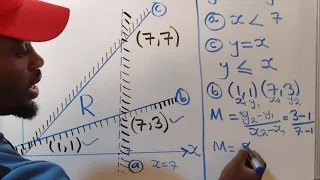 ⓒ
(7,7)
R
ⓑ
(7,3) ✓
(1,1) ✓
x
ⓐ x=7
ⓐ x < 7
ⓒ y=x
y ≤ x
ⓑ (1,1) (7,3)
x₁ y₁ x₂ y₂
M = y₂-y₁/x₂-x₁ = 3-1/7-1
M =